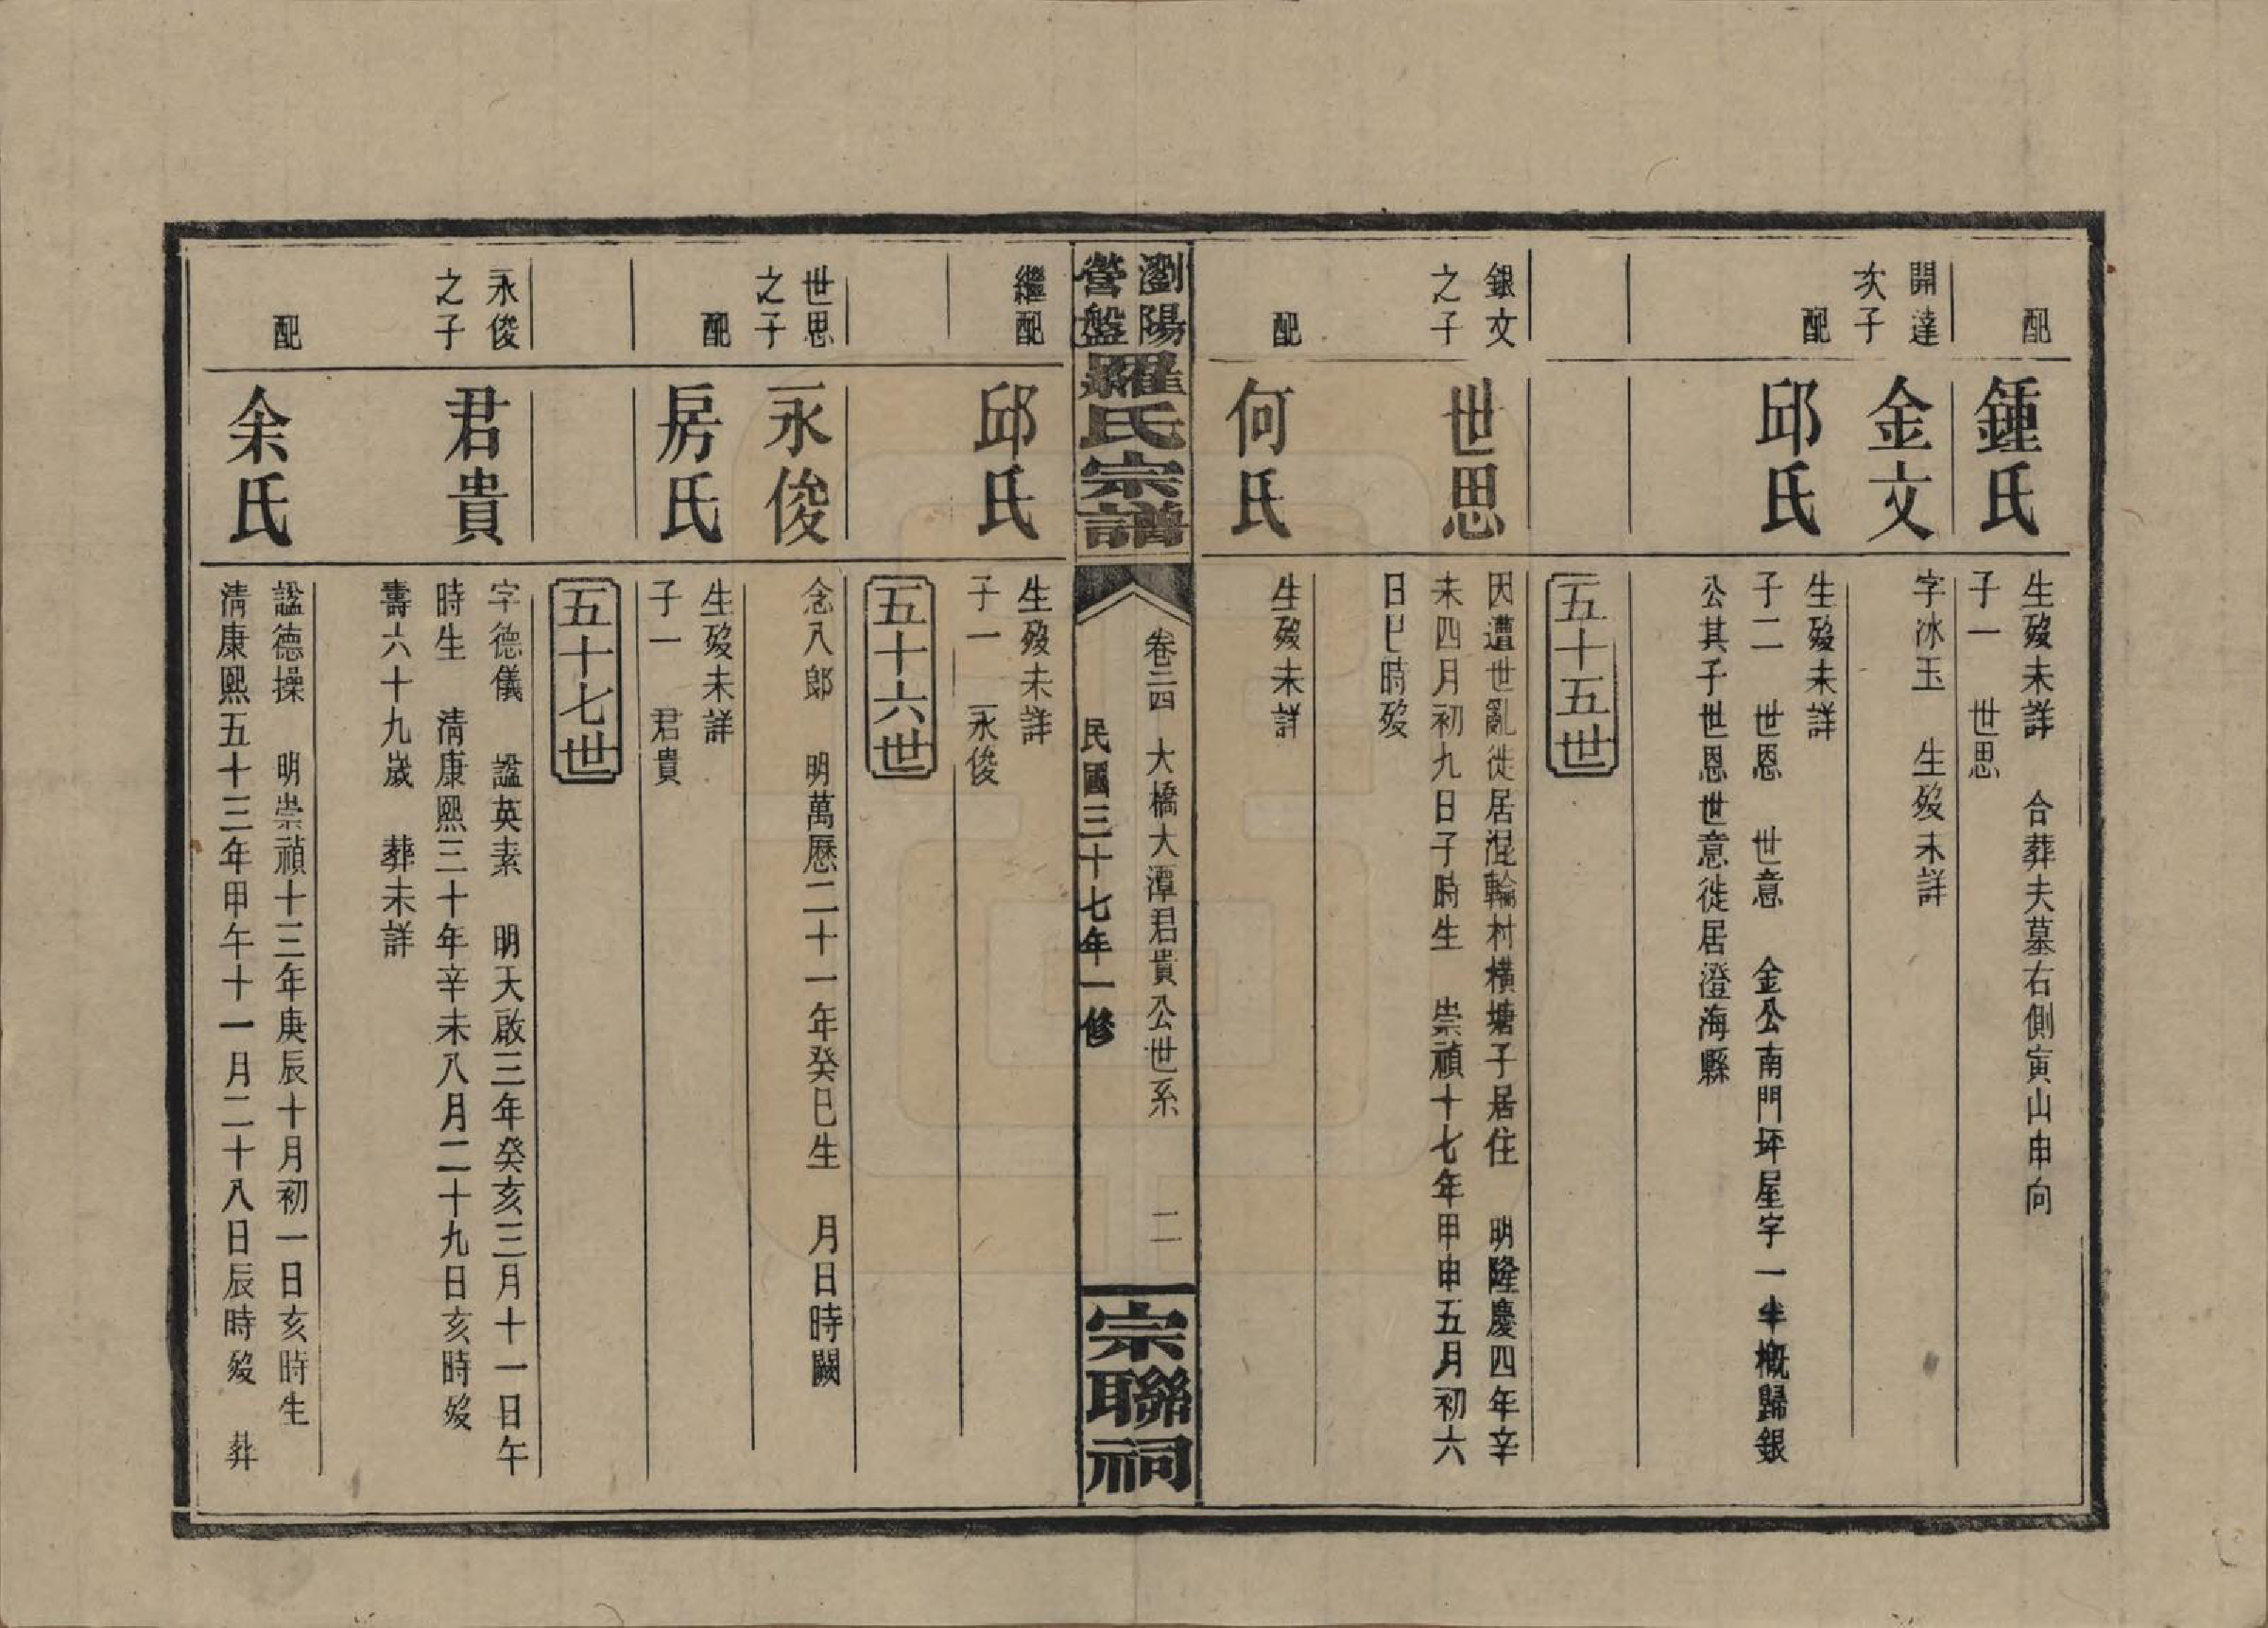 配
鍾氏
生歿未詳　合葬夫墓右側寅山申向
子一　世思
開達
次子
金文
字冰玉　生歿未詳
配
邱氏
生歿未詳
子二　世恩　世意　金公南門坪屋字一半概歸銀
公其子世恩世意徙居澄海縣
五十五世
銀文
之子
世思
因遭世亂徙居混輪村橫塘子居住　明隆慶四年辛
未四月初九日子時生　崇禎十七年甲申五月初六
日巳時歿
配
何氏
生歿未詳
瀏陽
營盤
羅氏宗譜
卷二四　大橋大潭君貴公世系　二
民國三十七年一修
宗聯祠
繼配
邱氏
生歿未詳
子一　永俊
五十六世
世思
之子
永俊
念八郎　明萬曆二十一年癸巳生　月日時闕
配
房氏
生歿未詳
子一　君貴
五十七世
永俊
之子
君貴
字德儀　諡英素　明天啟三年癸亥三月十一日午
時生　清康熙三十年辛未八月二十九日亥時歿
壽六十九歲　葬未詳
配
余氏
諡德操　明崇禎十三年庚辰十月初一日亥時生
清康熙五十三年甲午十一月二十八日辰時歿　葬